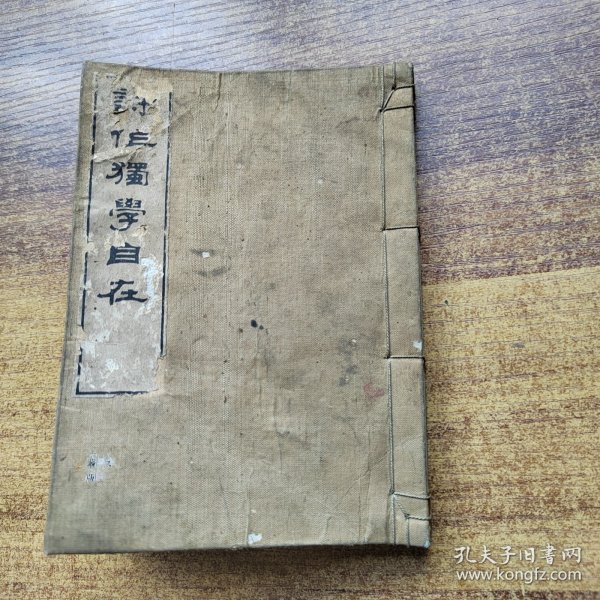 詩作獨學自在
孔夫子旧书网
www.kongfz.com